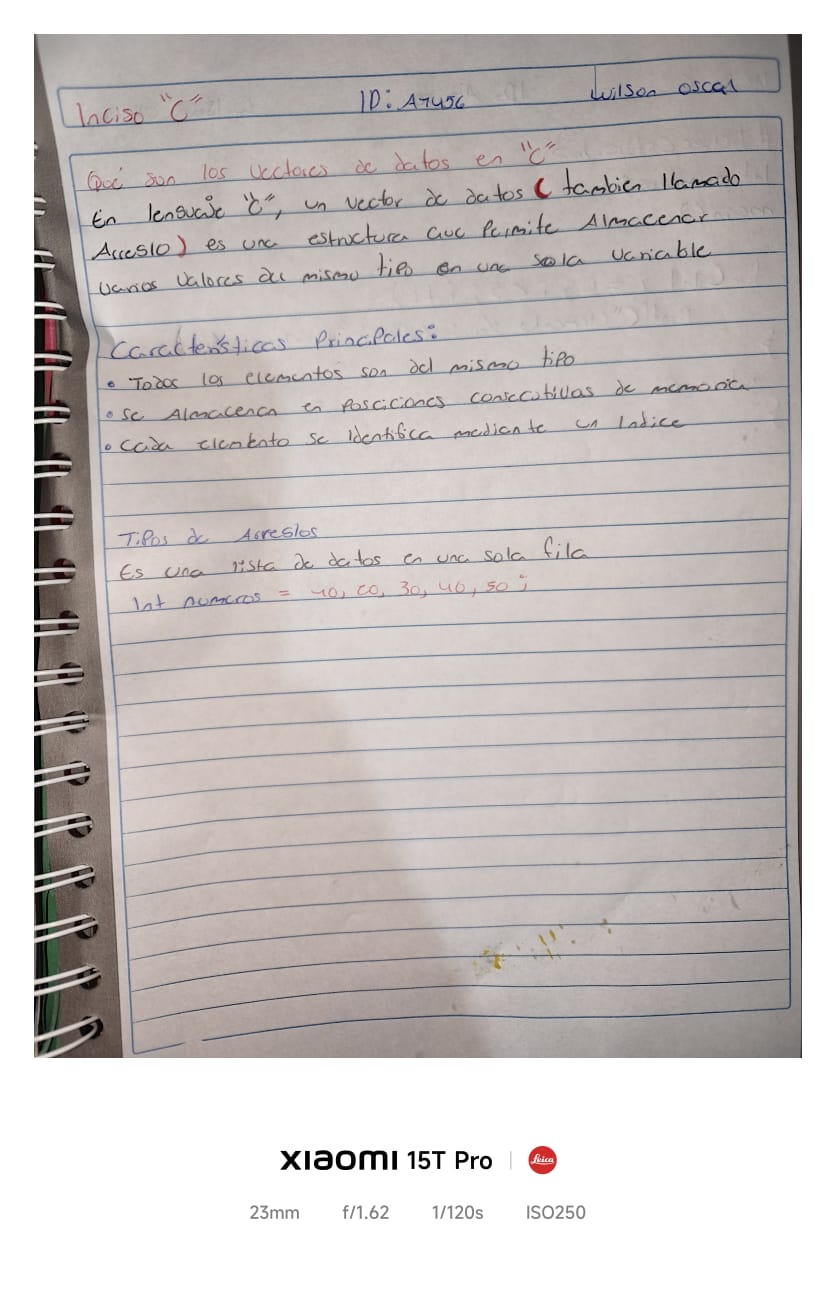 Inciso "C" ID: A7456 Wilson oscal
Qué son los vectores de datos en "C"
En lenguaje "C", un vector de datos ( tambien llamado
Arreglo) es una estructura que Permite Almacenar
varios valores del mismo tipo en una sola variable
Características Principales:
• Todos los elementos son del mismo tipo
• Se Almacenan en Posciciones consecutivas de memoria
• Cada elemento se identifica mediante un Indice
Tipos de Arreglos
Es una lista de datos en una sola fila
Int numeros = 40, 20, 30, 40, 50 ;
XIAOMI 15T Pro
Leica
23mm f/1.62 1/120s ISO250